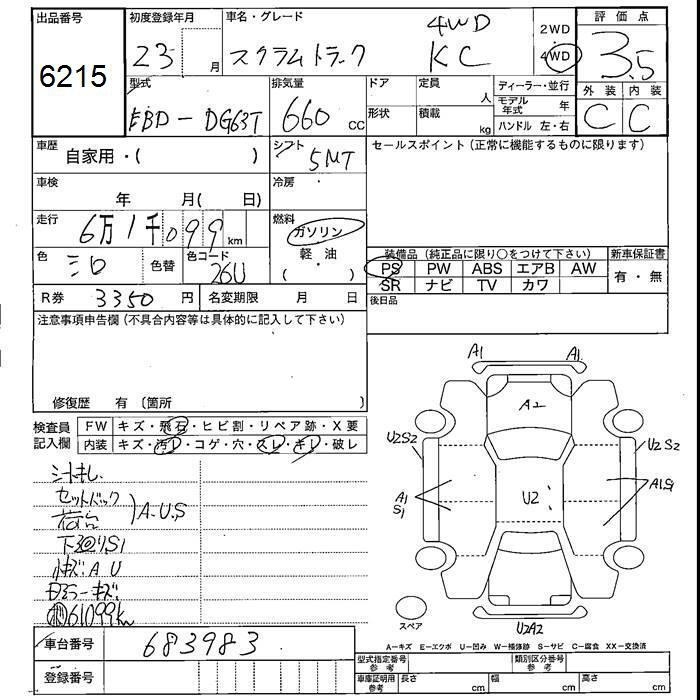 出品番号
6215
初度登録年月
23 月
車名・グレード
スクラムトラック
4WD
KC
2WD
4WD
評価点
3.5
外装 内装
C C
型式
EBD-DG63T
排気量
660 cc
ドア
定員
人
形状
積載
kg
ディーラー・並行
モデル年式 年
ハンドル 左・右
車歴
自家用・( )
シフト
5MT
セールスポイント(正常に機能するものに限ります)
車検
年 月( 日)
冷房
走行
6万1千099km
燃料
ガソリン
軽油
( )
色
シロ
色替
色コード
26U
装備品(純正品に限り○をつけて下さい)
新車保証書
PS PW ABS エアB AW
SR ナビ TV カワ
有・無
R券 3350円
名変期限 月 日
後日品
注意事項申告欄(不具合内容等は具体的に記入して下さい)
修復歴 有(箇所 )
検査員記入欄
FW キズ・飛石・ヒビ割・リペア跡・X要
内装 キズ・汚レ・コゲ・穴・スレ・キレ・破レ
シートキレ
セットバック
荷台
A.U.S
下廻りS1
小キズ A U
61099km
A1
A1
A2
U2S2
U2S2
A1
S1
U2
A1S1
U2A2
スペア
A-キズ E-エクボ U-凹み W-補修跡 S-サビ C-腐食 XX-交換済
車台番号 683983
登録番号
型式指定番号 参考
類別区分番号 参考
車庫証明用 参考
長さ cm
幅 cm
高さ cm